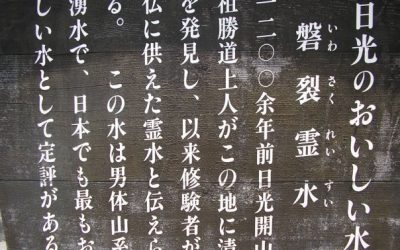 日光のおいしい水
いわ さく れい すい
磐裂霊水
一二〇〇余年前日光開山
祖勝道上人がこの地に清
を発見し、以来修験者が
仏に供えた霊水と伝えら
る。 この水は男体山系
湧水で、日本でも最もお
しい水として定評がある